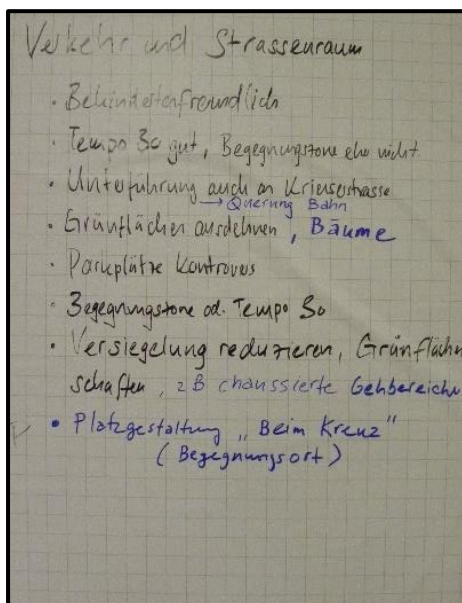 Verkehr und Strassenraum
· Behindertenfreundlich
· Tempo 30 gut, Begegnungszone eher nicht
· Unterführung auch an Krienserstrasse
→ Querung Bahn
· Grünflächen ausdehnen, Bäume
· Parkplätze Kontrovers
· Begegnungszone od. Tempo 30
· Versiegelung reduzieren, Grünflächen
schaffen, zB chaussierte Gehbereiche
· Platzgestaltung „Beim Kreuz"
(Begegnungsort)